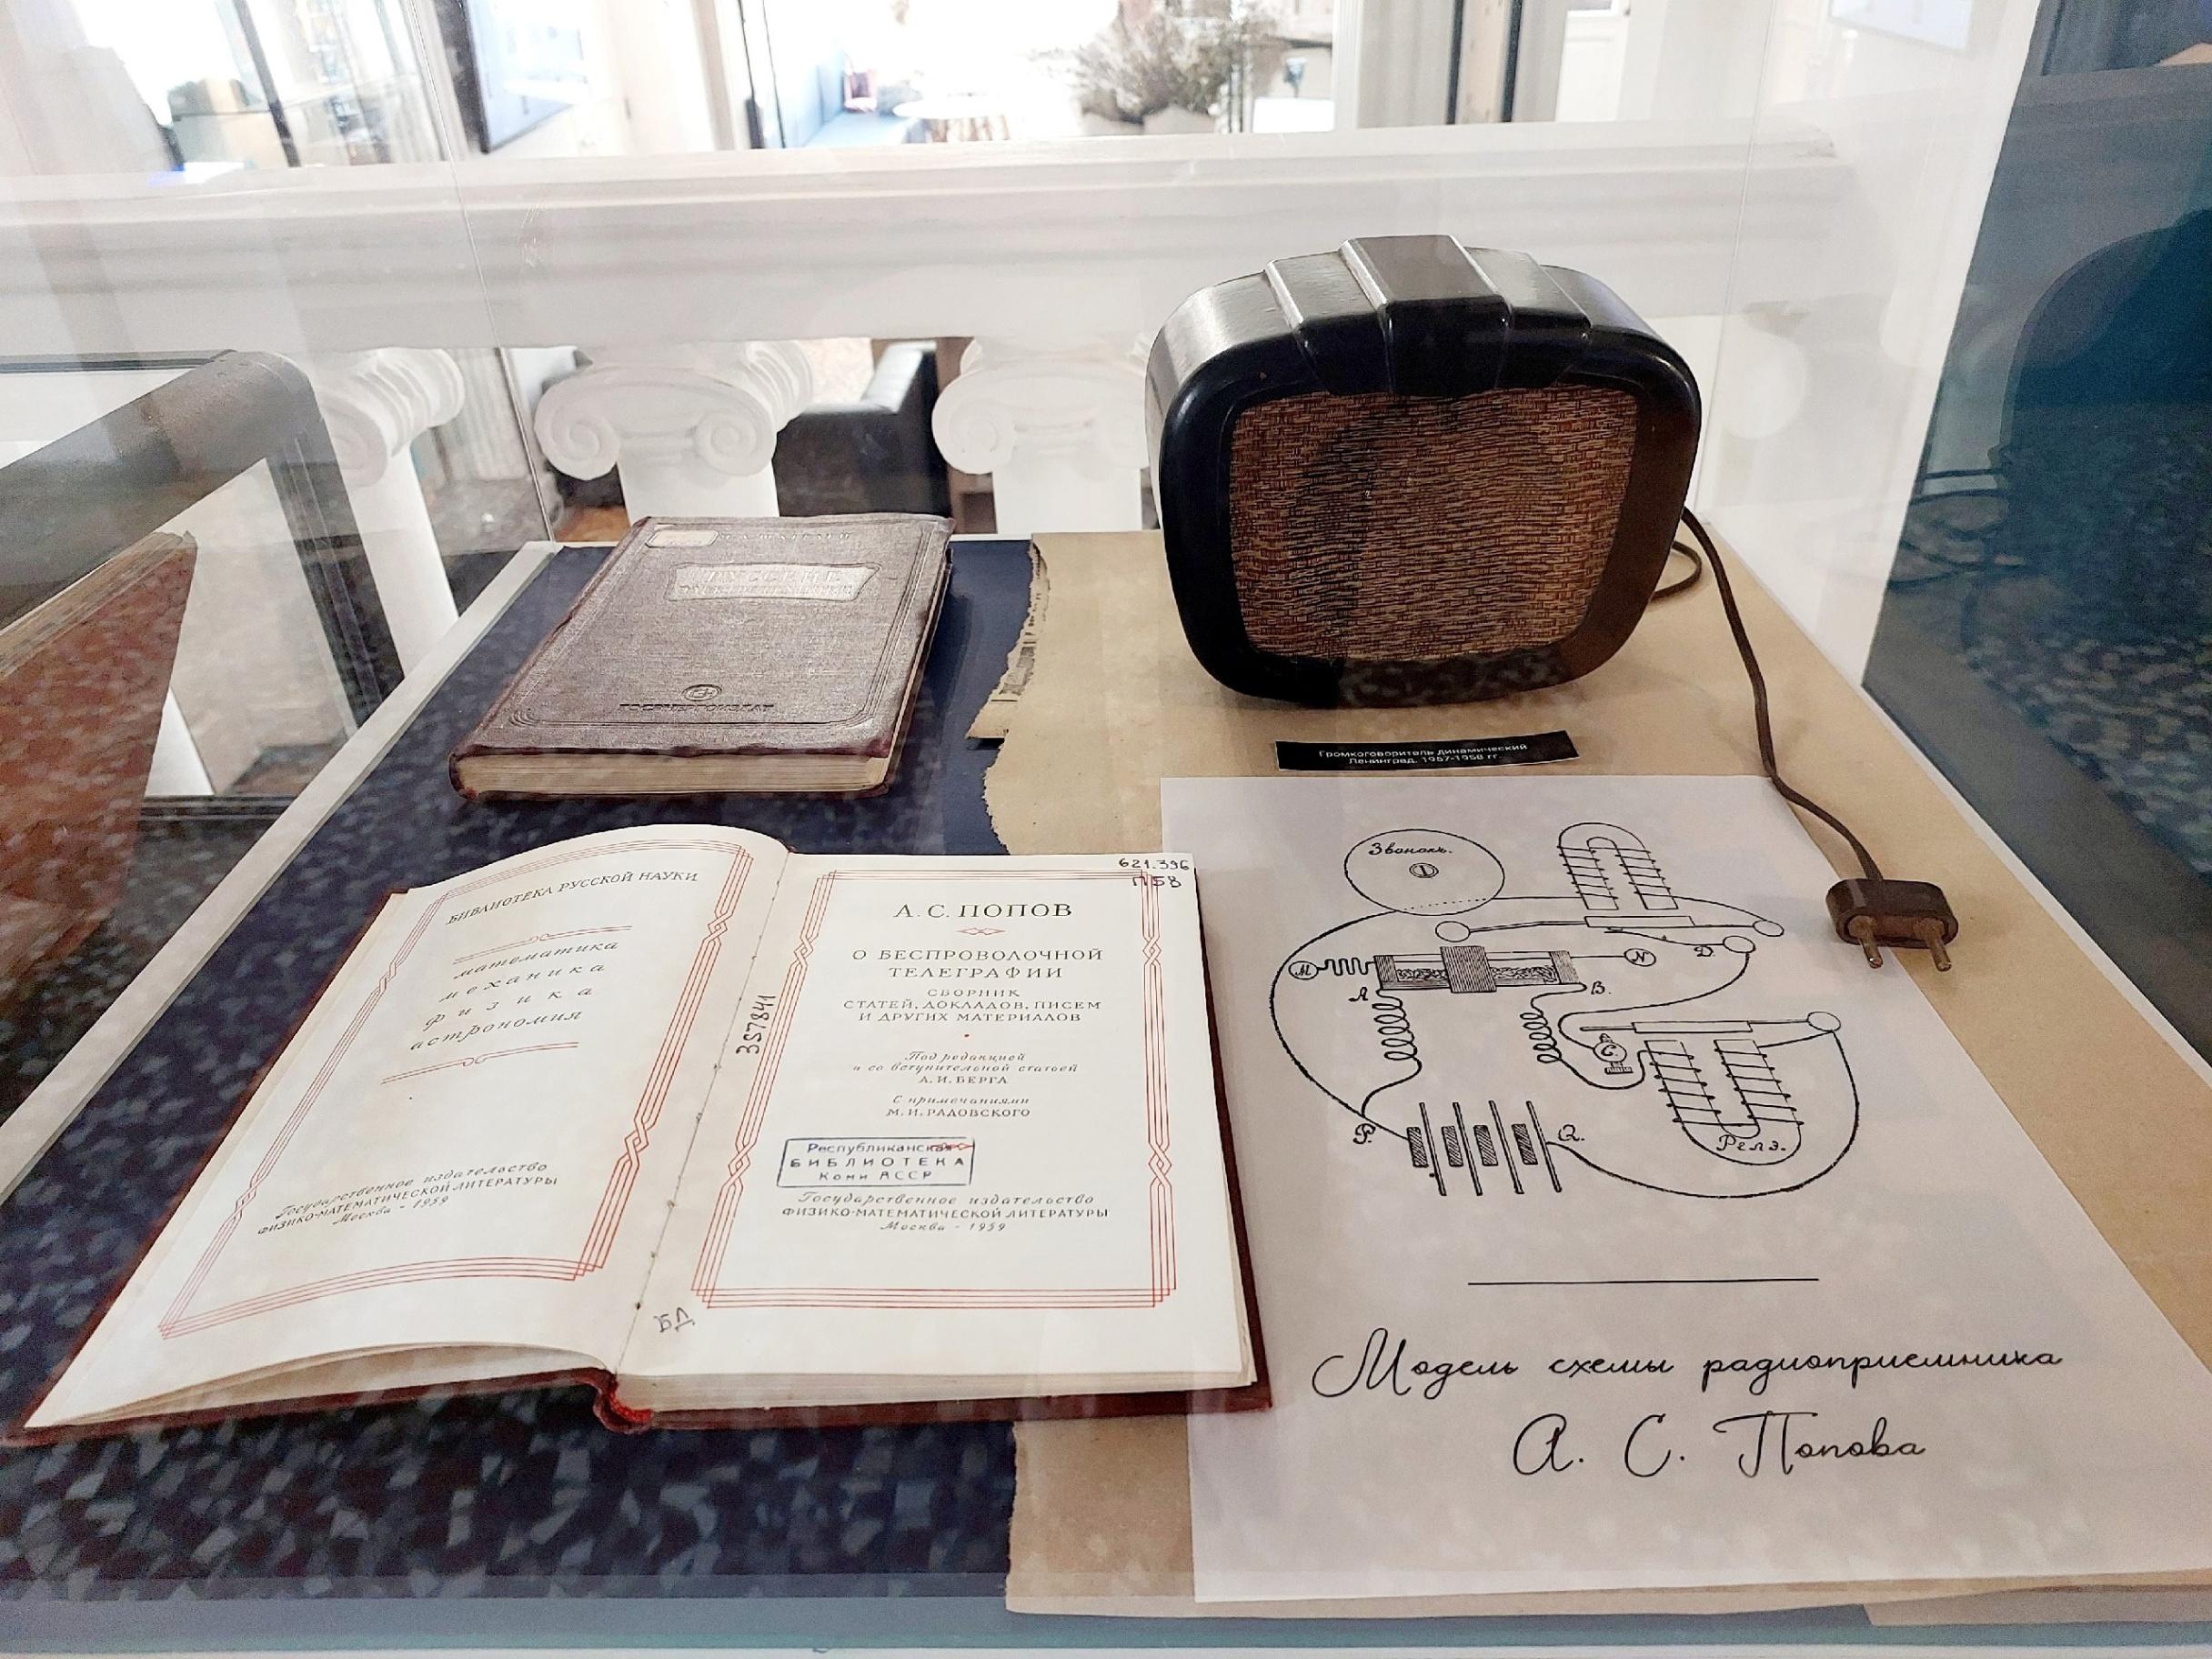 РУССКИЕ
ГОСЭНЕРГОИЗДАТ
Громкоговоритель динамический
Ленинград. 1957-1958 гг.
БИБЛИОТЕКА РУССКОЙ НАУКИ
математика
механика
физика
астрономия
Государственное издательство
ФИЗИКО-МАТЕМАТИЧЕСКОЙ ЛИТЕРАТУРЫ
Москва - 1959
621.396
П58
А. С. ПОПОВ
О БЕСПРОВОЛОЧНОЙ
ТЕЛЕГРАФИИ
СБОРНИК
СТАТЕЙ, ДОКЛАДОВ, ПИСЕМ
И ДРУГИХ МАТЕРИАЛОВ
Под редакцией
и со вступительной статьей
А. И. БЕРГА
С примечаниями
М. И. РАДОВСКОГО
357841
Республиканская
БИБЛИОТЕКА
Коми АССР
Государственное издательство
ФИЗИКО-МАТЕМАТИЧЕСКОЙ ЛИТЕРАТУРЫ
Москва - 1959
БД
Звонокъ.
D.
M
N
A
B.
C.
P.
Q.
Релэ.
Модель схемы радиоприемника
А. С. Попова